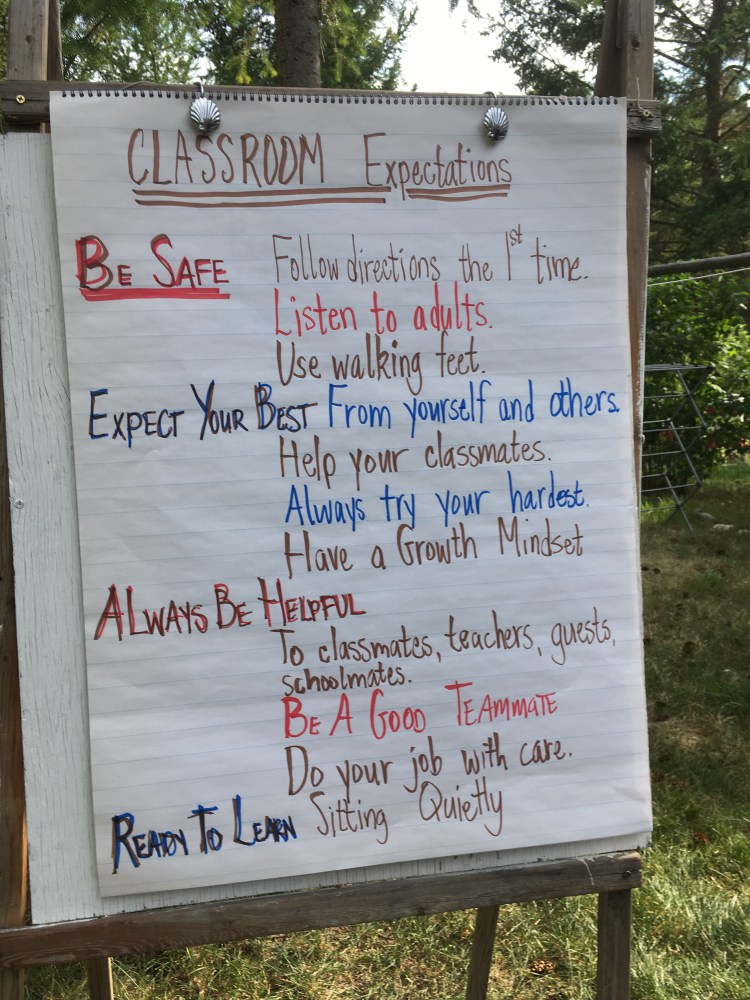 CLASSROOM Expectations
BE SAFE Follow directions the 1st time.
Listen to adults.
Use walking feet.
EXPECT YOUR BEST From yourself and others.
Help your classmates.
Always try your hardest.
Have a Growth Mindset
ALWAYS BE HELPFUL
To classmates, teachers, guests,
schoolmates.
BE A GOOD TEAMMATE
Do your job with care.
READY TO LEARN Sitting Quietly